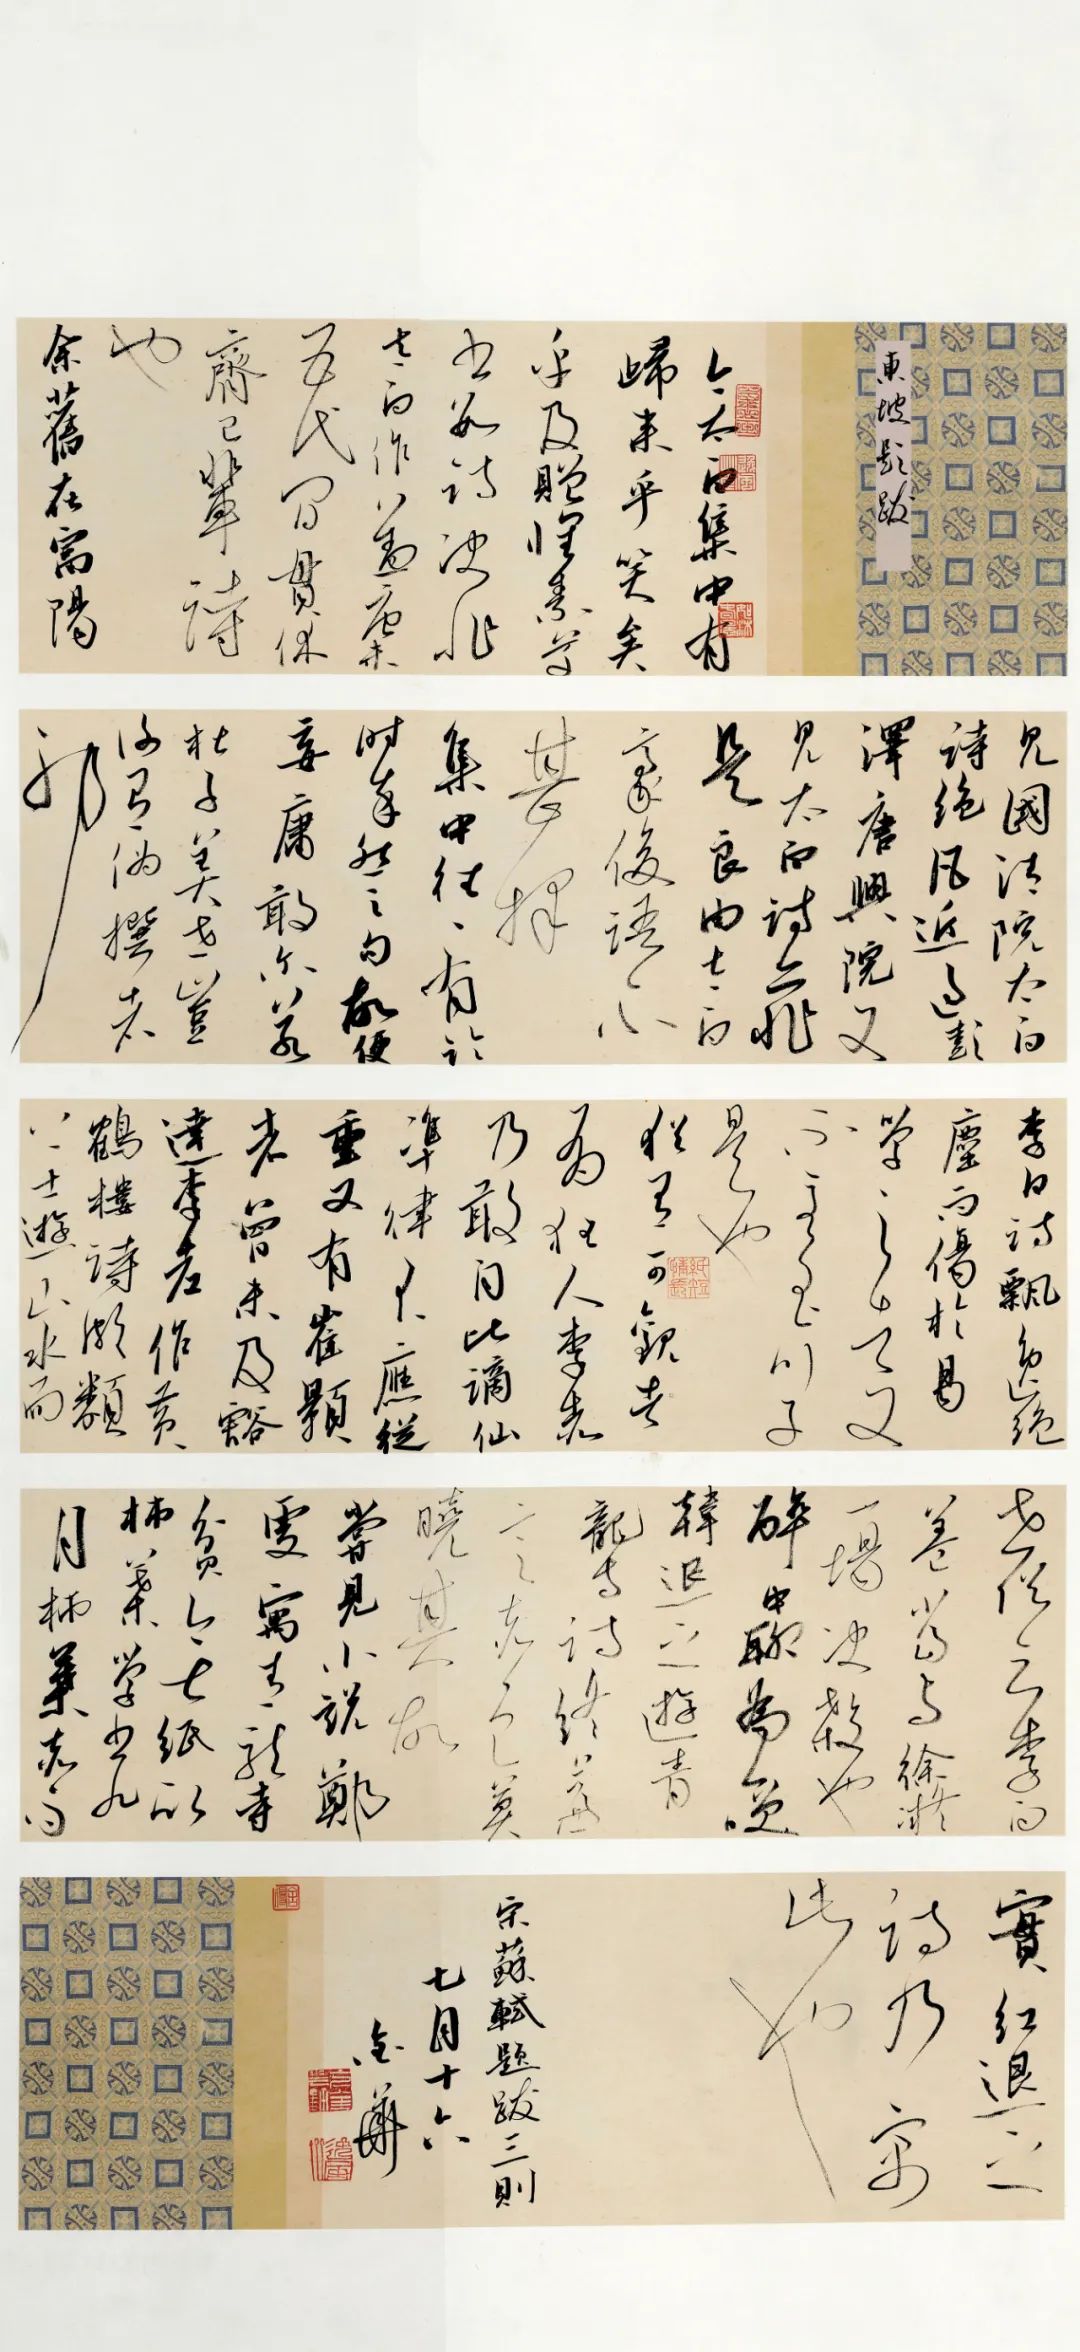 東坡題跋
今太白集中有
歸來乎笑矣
乎及贈懷素草
書數詩決非
太白作蓋唐末
五代間貫休
齊己輩詩
也
余舊在富陽
見國清院太白
詩絶凡近過彭
澤唐興院又
見太白詩亦非
是良由太白
豪俊語不
甚擇
集中往往有臨
時率然之句故使
妄庸敢尔若
杜子美世豈
復有偽撰者
耶
李白詩飄逸絶
塵而傷於易
學之者又
不至玉川子
是也
猶有可觀者
有狂人李赤
乃敢自比謫仙
準律不應從
重又有崔顥
者曾未及豁
達李老作黄
鶴樓詩頗類
上士遊山水而
世俗云李白
蓋當與徐凝
一場決殺也
醉中聊為笑
韓退之遊青
龍寺詩終篇
言赤色莫
曉其故
嘗見小説鄭
虔寓青龍寺
貧無紙取
柿葉學書九
月柿葉赤而
實紅退之
詩乃寓
此也
宋蘇軾題跋三則
七月十六